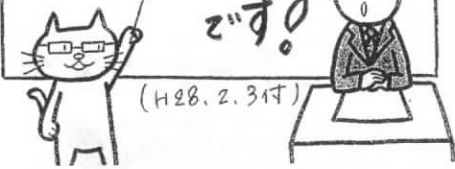 です!
(H28.2.3付)